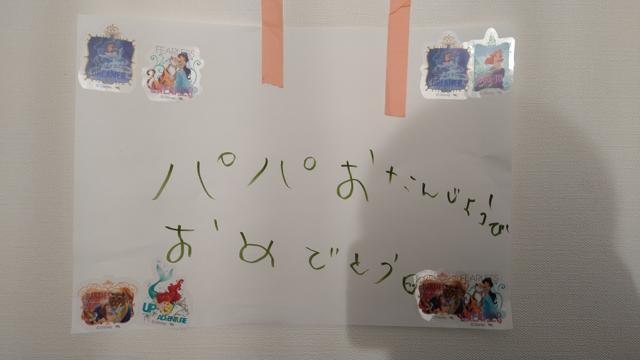 FEARLESS
パパおたんじょうび
おめでとう
UP
ADVENTURE
FEARLESS